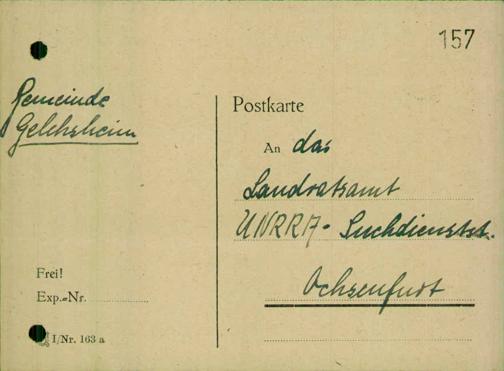 157
Gemeinde
Gelchsheim
Postkarte
An das
Landratsamt
UNRRA - Suchdienstst.
Ochsenfurt
Frei!
Exp.-Nr.
I/Nr. 163 a